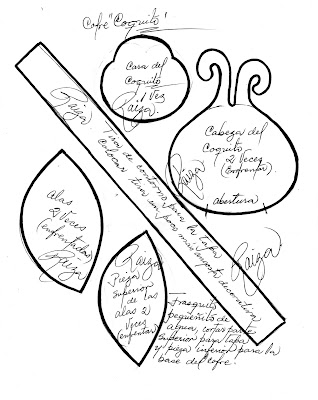 Cofre "Coquito"
Cara del
Coquito
1 Vez
Raiza.
Cabeza del
Coquito
2 Veces
(enfrentar)
Raiza
abertura
Raiza.
Tira de contorno para la tapa
Colocar tira un poco más larga
Raiza.
alas
2 Veces
(enfrentadas)
Raiza
Raiza
Pieza
Superior
de las
alas 2
Veces
(enfrentar)
Frasquito
pequeñito de
cortar parte
superior para tapa
y pieza inferior para la
base del cofre.